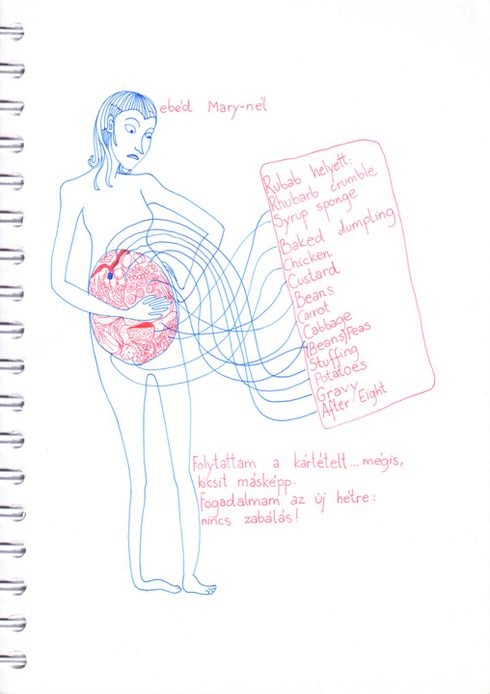 ebéd Mary-nél
Rubab helyett:
Rhubarb crumble
Syrup sponge
Baked dumpling
Chicken
Custard
Beans
Carrot
Cabbage
(Beans)Peas
Stuffing
Potatoes
Gravy
After Eight
Folytattam a kártételt...mégis,
kicsit másképp.
Fogadalmam az új hétre:
nincs zabálás!